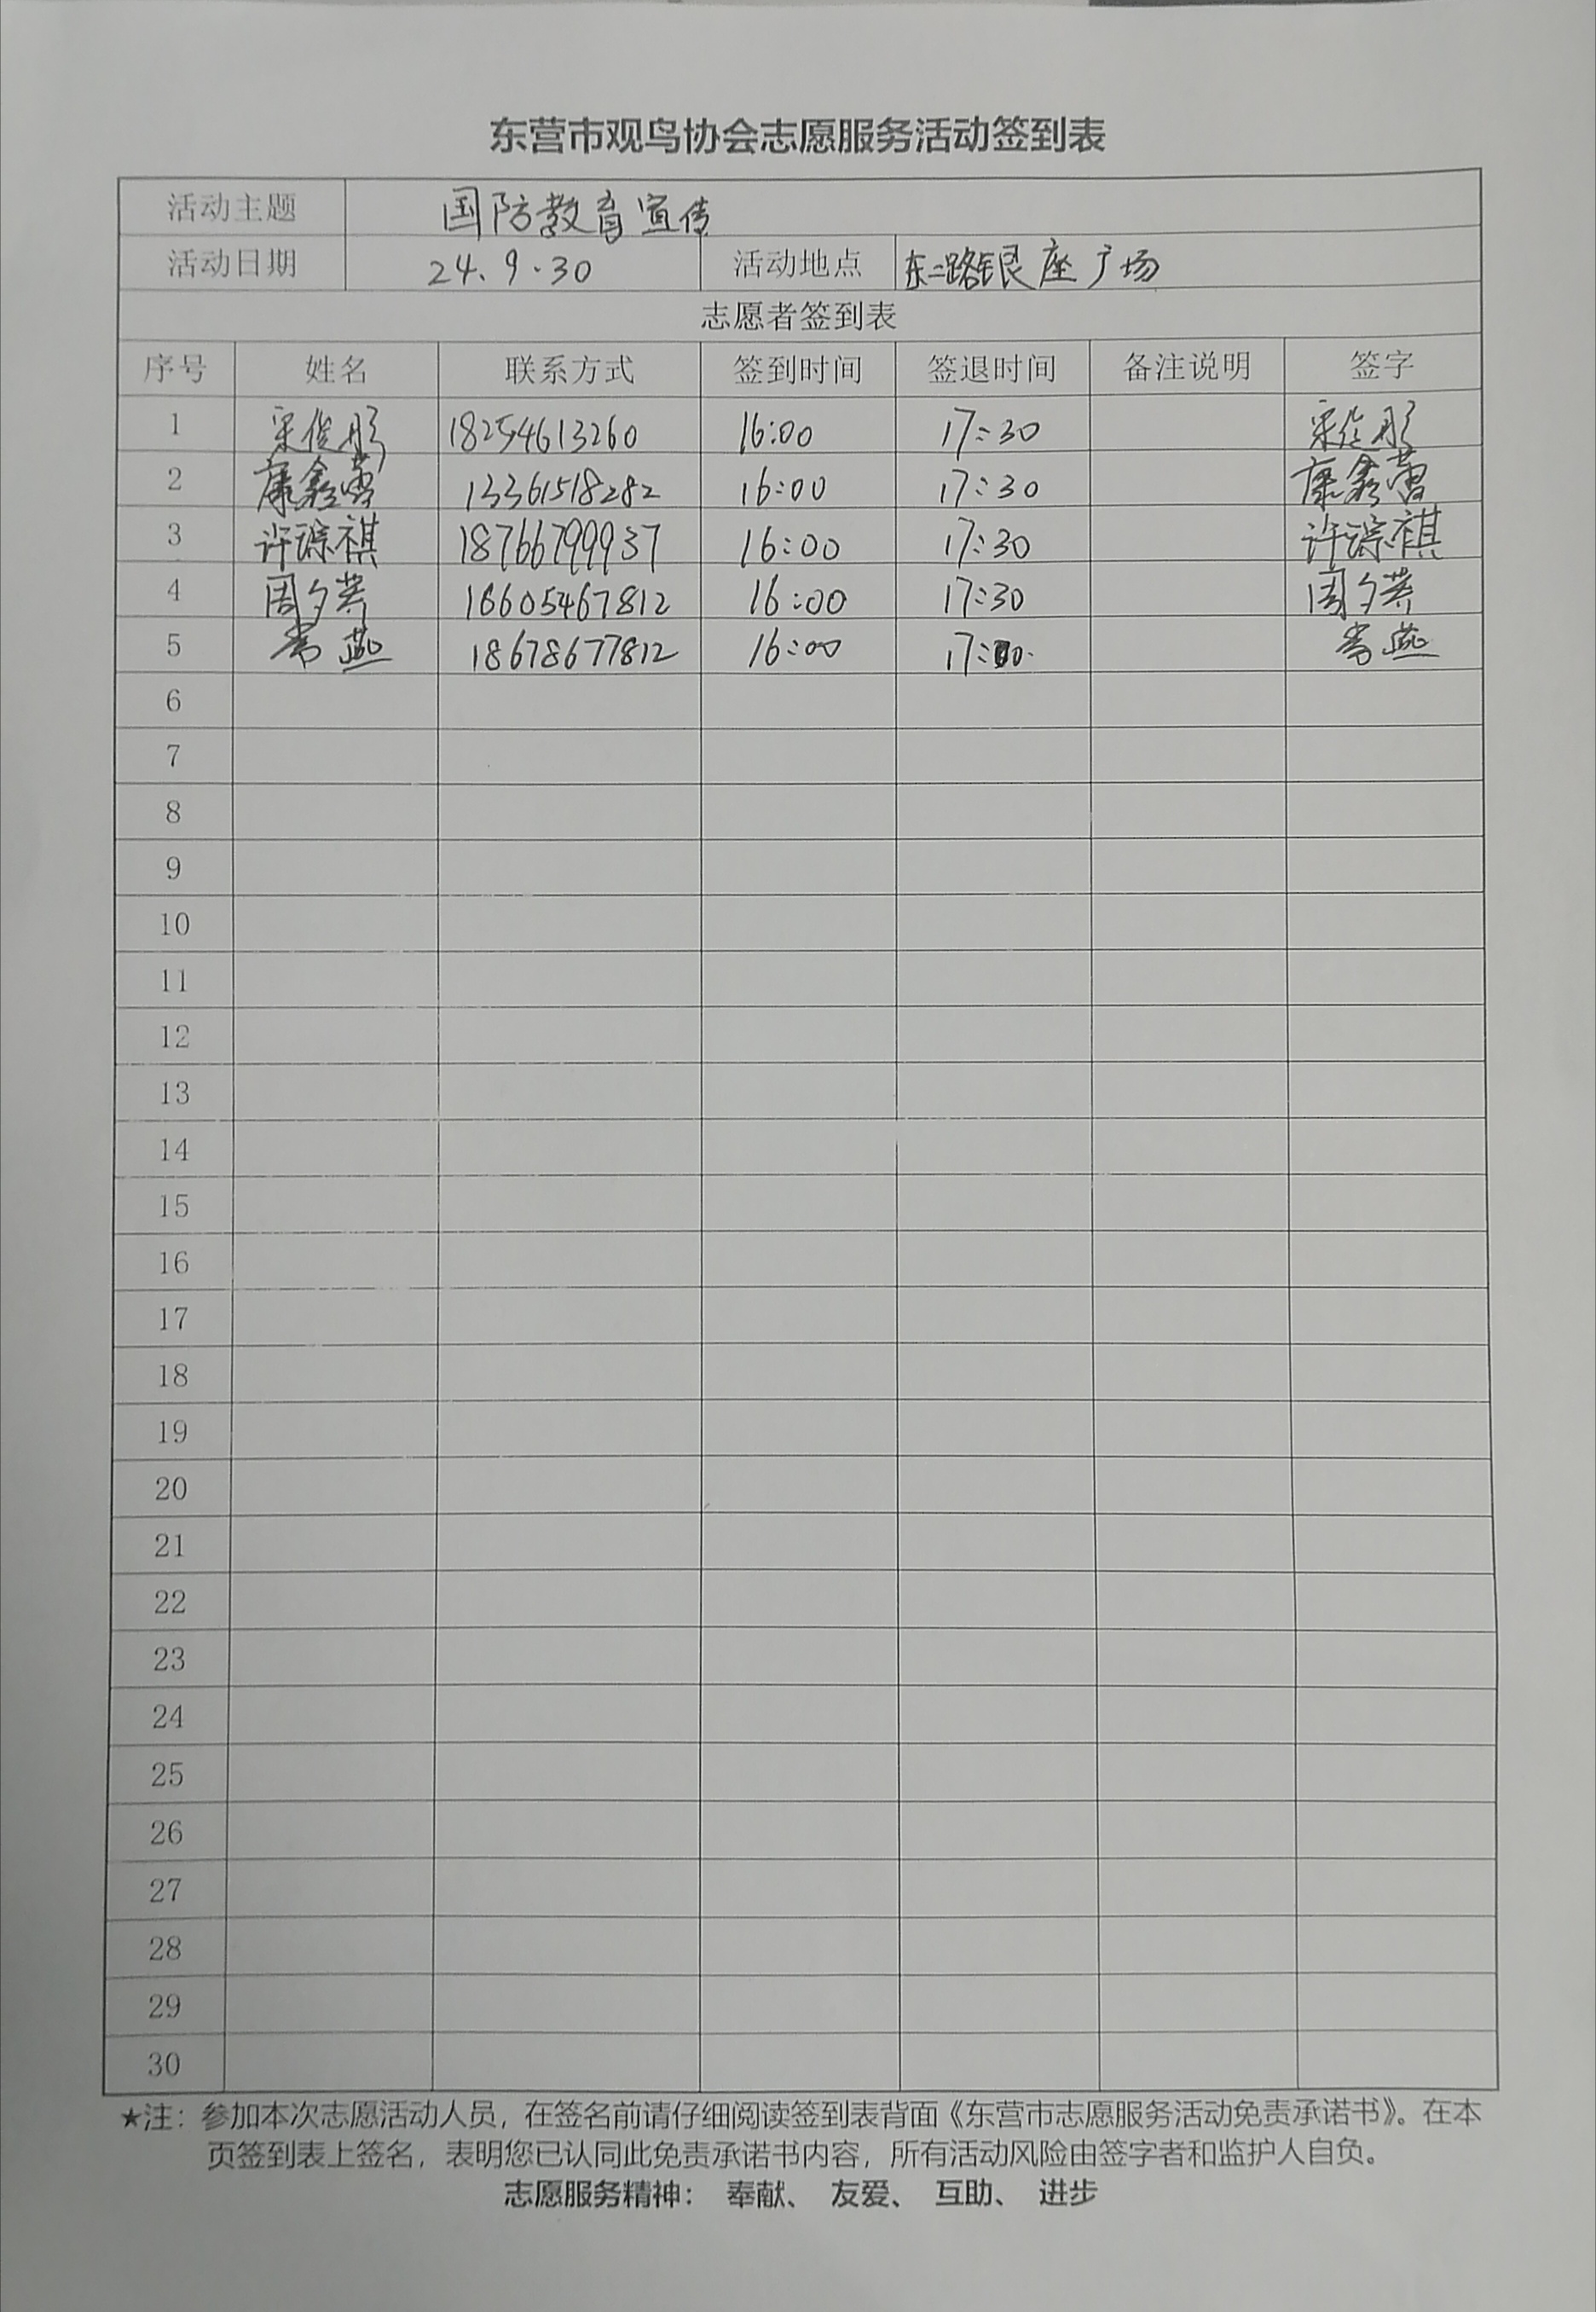 东营市观鸟协会志愿服务活动签到表
活动主题 国防教育宣传
活动日期 24.9.30 活动地点 东二路银座广场
志愿者签到表
序号 姓名 联系方式 签到时间 签退时间 备注说明 签字
1 宋俊彤 18254613260 16:00 17:30 宋俊彤
2 康鑫蕾 13361518282 16:00 17:30 康鑫蕾
3 许琮祺 18766799937 16:00 17:30 许琮祺
4 周夕 16605467812 16:00 17:30 周夕
5 常燕 18678677812 16:00 常燕
6
7
8
9
10
11
12
13
14
15
16
17
18
19
20
21
22
23
24
25
26
27
28
29
30
★注：参加本次志愿活动人员，在签名前请仔细阅读签到表背面《东营市志愿服务活动免责承诺书》。在本
页签到表上签名，表明您已认同此免责承诺书内容，所有活动风险由签字者和监护人自负。
志愿服务精神： 奉献、 友爱、 互助、 进步